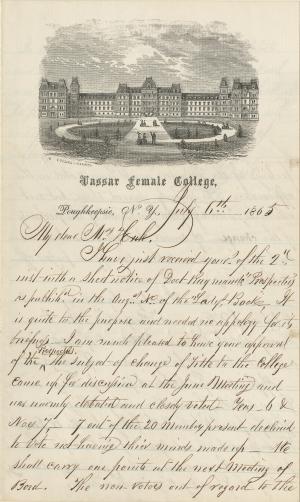 Vassar Female College,
Poughkeepsie, N. Y. July 6th 1865
My dear Mrs Hale.
Have just received yours of the 2nd
inst with a short notice of Doct Raymonds Prospectus
as publishd in the Augt No of the Ladys Book, It
is quite to the purpose and needed no appology for its
briefness. I am much pleased to have your approval
of the Prospectus, the subject of change of Title to the College
came up for discussion at the June Meeting and
was warmly debated and closely voted Yeas 6 &
Nays 7 — 7 out of the 20 Members present declined
to vote not having their minds made up — We
shall carry our points at the next Meeting of
Bord. The non voters out of regard to the